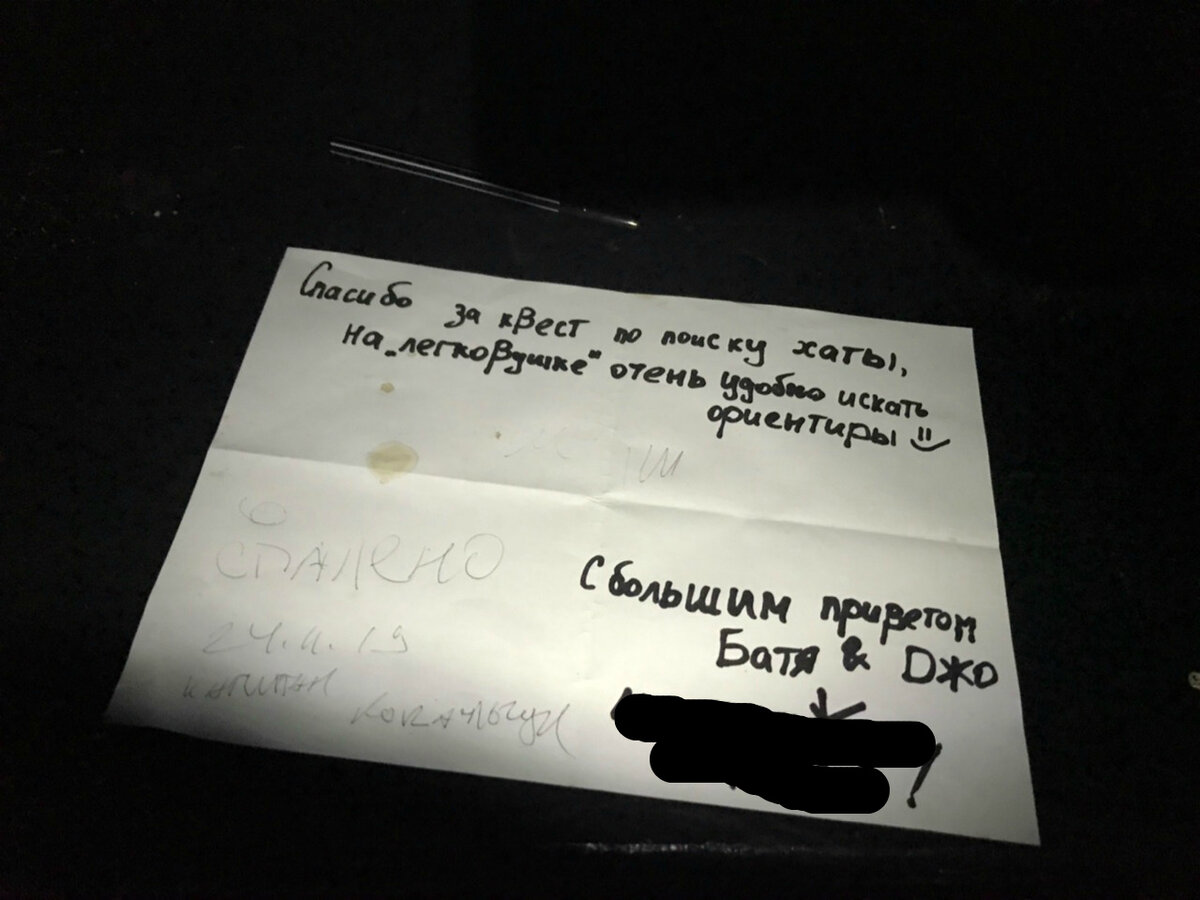 Спасибо за квест по поиску хаты,
на „легковушке“ очень удобно искать
ориентиры
С большим приветом
Батя & Джо
!
СПАЛЕНО
24.11.19
капитан
Ковальчук